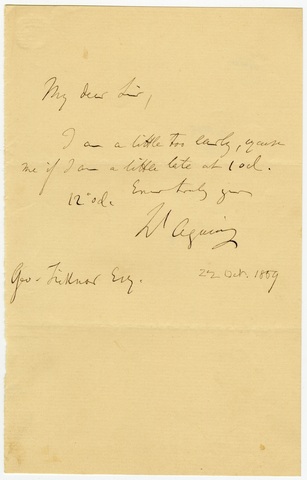 My dear Sir,
I am a little too early, excuse
me if I am a little late at 1 ocl.
12 ocl. Ever truly yours
L Agassiz
Geo. Ticknor Esq.
22 Oct. 1859